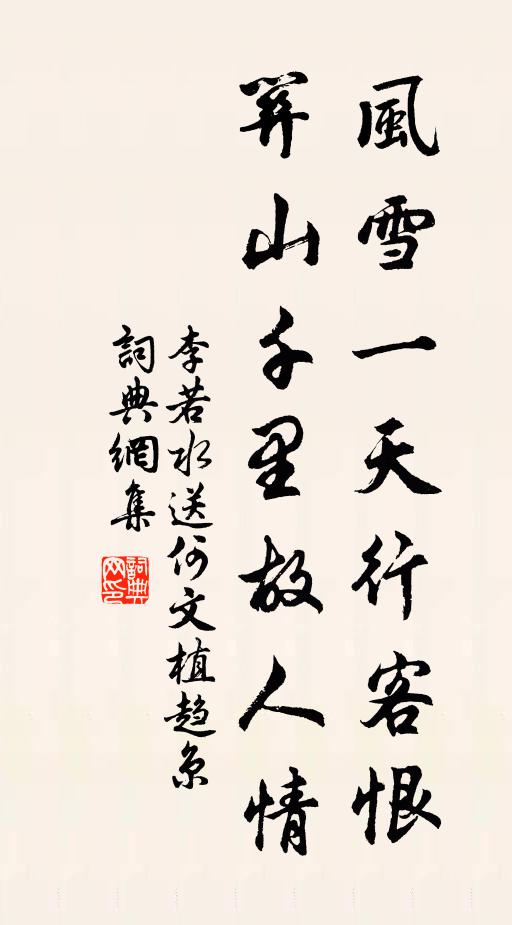 風雪一天行客恨
關山千里故人情
李若水送何文植趋京
詞典網集
詞典网印